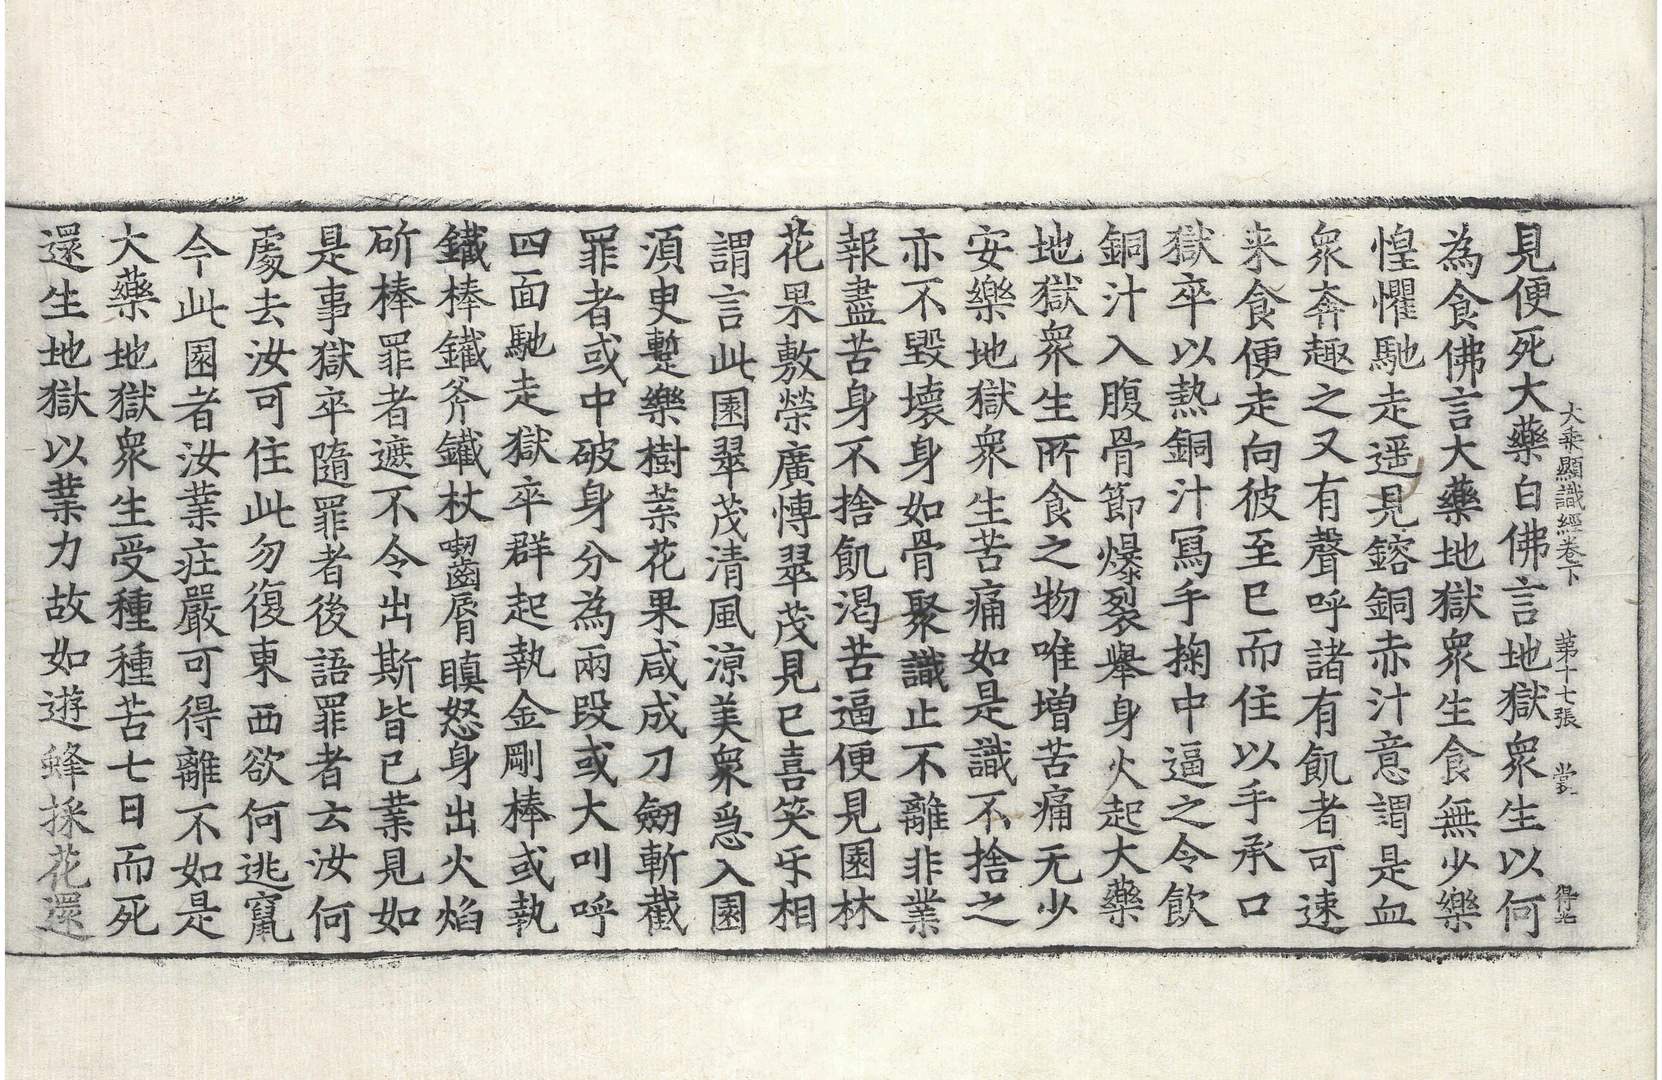 大乘顯識經卷下 第十七張 當 得
見便死大藥白佛言地獄衆生以何
為食佛言大藥地獄衆生食無少樂
惶懼馳走遥見鎔銅赤汁意謂是血
衆奔趣之又有聲呼諸有飢者可速
来食便走向彼至已而住以手承口
獄卒以熱銅汁寫手掬中逼之令飲
銅汁入腹骨節爆裂舉身火起大藥
地獄衆生所食之物唯增苦痛无少
安樂地獄衆生苦痛如是識不捨之
亦不毀壞身如骨聚識止不離非業
報盡苦身不捨飢渴苦逼便見園林
花果敷榮廣愽翠茂見已喜笑乐相
謂言此園翠茂清風凉美衆急入園
湏臾蹔樂樹葉花果咸成刀劒斬截
罪者或中破身分為兩段或大叫呼
四面馳走獄卒群起執金剛棒或執
鐵棒鐵斧鐵杖囓齒脣瞋怒身出火焰
斫棒罪者遮不令出斯皆已業見如
是事獄卒隨罪者後語罪者云汝何
處去汝可住此勿復東西欲何逃竄
今此園者汝業莊嚴可得離不如是
大藥地獄衆生受種種苦七日而死
還生地獄以業力故如遊蜂採花還